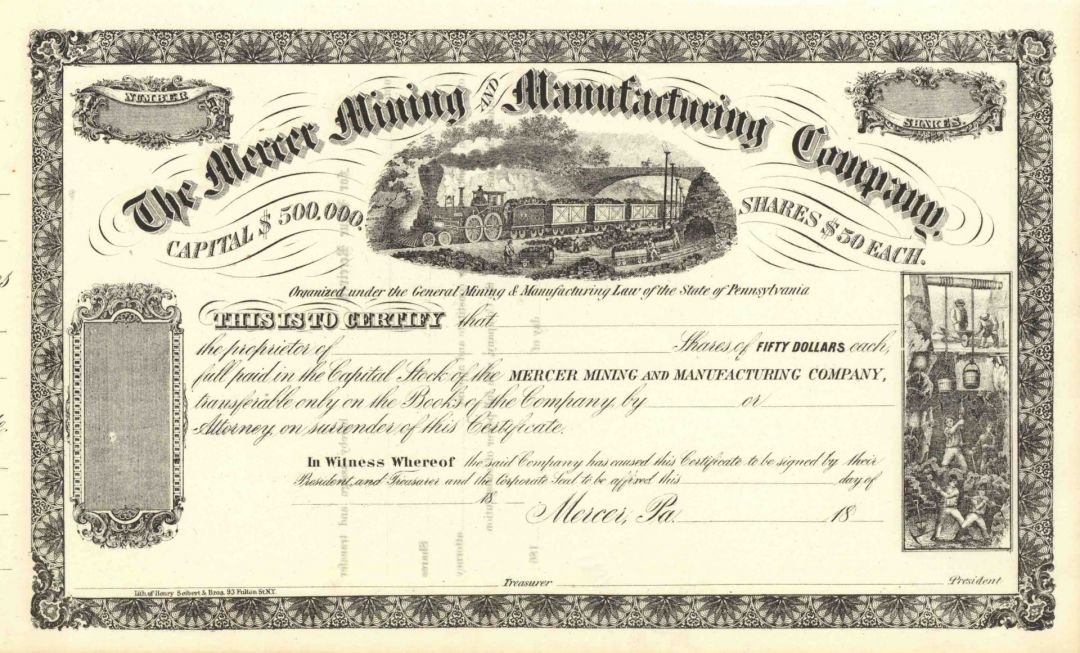 NUMBER
SHARES.
The Mercer Mining AND Manufacturing Company.
CAPITAL $ 500,000.
SHARES $ 50 EACH.
Organized under the General Mining & Manufacturing Law of the State of Pennsylvania
THIS IS TO CERTIFY that
the proprietor of Shares of FIFTY DOLLARS each,
full paid in the Capital Stock of the MERCER MINING AND MANUFACTURING COMPANY,
transferable only on the Books of the Company by or
Attorney on surrender of this Certificate.
In Witness Whereof the said Company has caused this Certificate to be signed by their
President and Treasurer and the Corporate Seal to be affixed this day of
18
Mercer, Pa. 18
Treasurer President
Lith. of Henry Seibert & Bros. 93 Fulton St. N.Y.